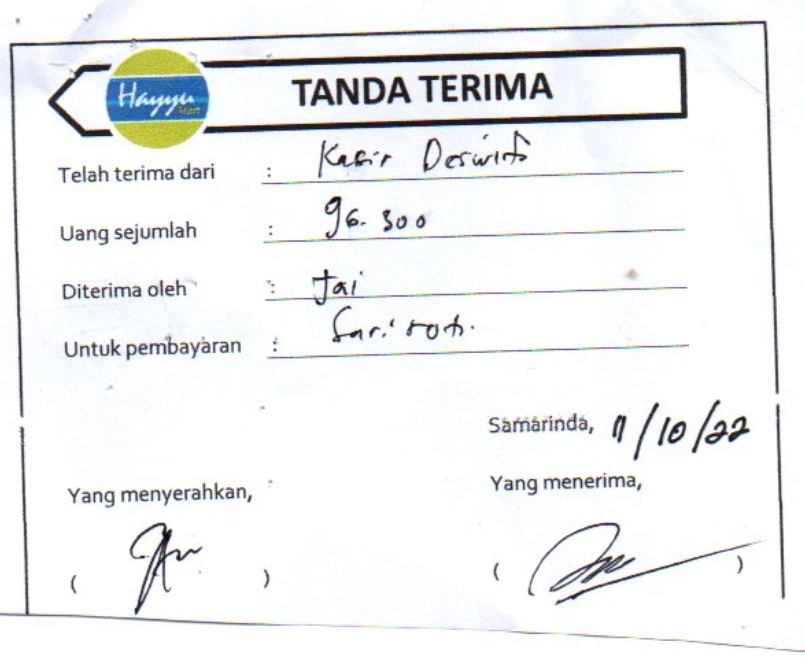 Hayyu
Mart
TANDA TERIMA
Telah terima dari : Kasir
Uang sejumlah : 96.300
Diterima oleh : Jai
Untuk pembayaran : Sari roti.
Samarinda, 11/10/22
Yang menyerahkan,
Yang menerima,
( )
( )